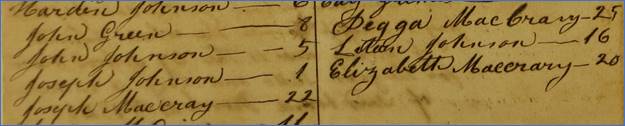 Harden Johnson — 6
John Green — 8
John Johnson — 5
Joseph Johnson — 1
Joseph Maccray — 22
11
Pegga MacCrary — 25
Johnson — 16
Elizabeth Maccrary — 20